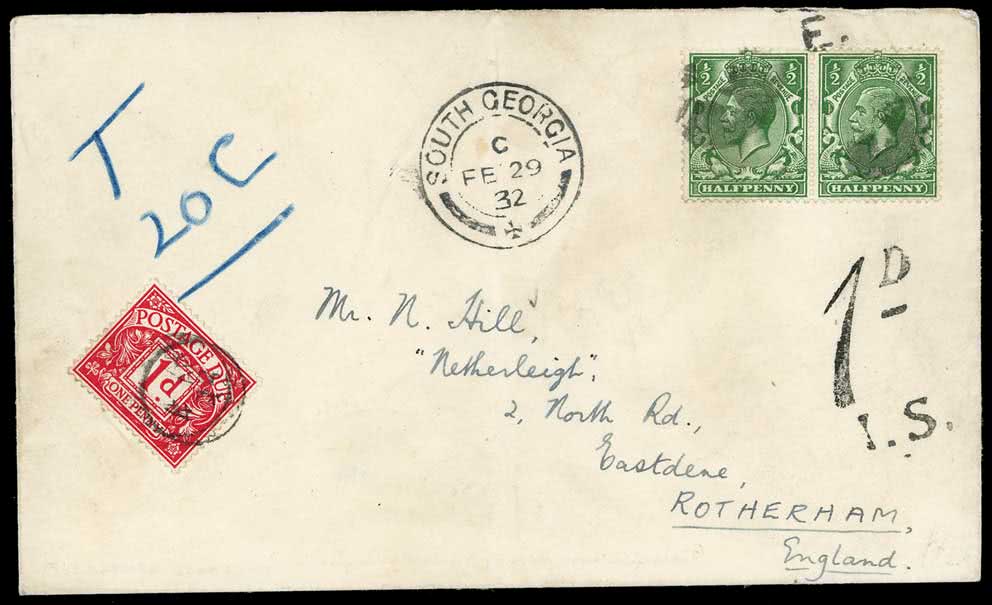 T
20 C
SOUTH GEORGIA
C
FE 29
32
½ ½
POSTAGE REVENUE
HALFPENNY
½ ½
POSTAGE REVENUE
HALFPENNY
1D
I.S.
POSTAGE DUE
1d
ONE PENNY
Mr. N. Hill,
"Netherleigh",
2, North Rd.,
Eastdene,
ROTHERHAM,
England.